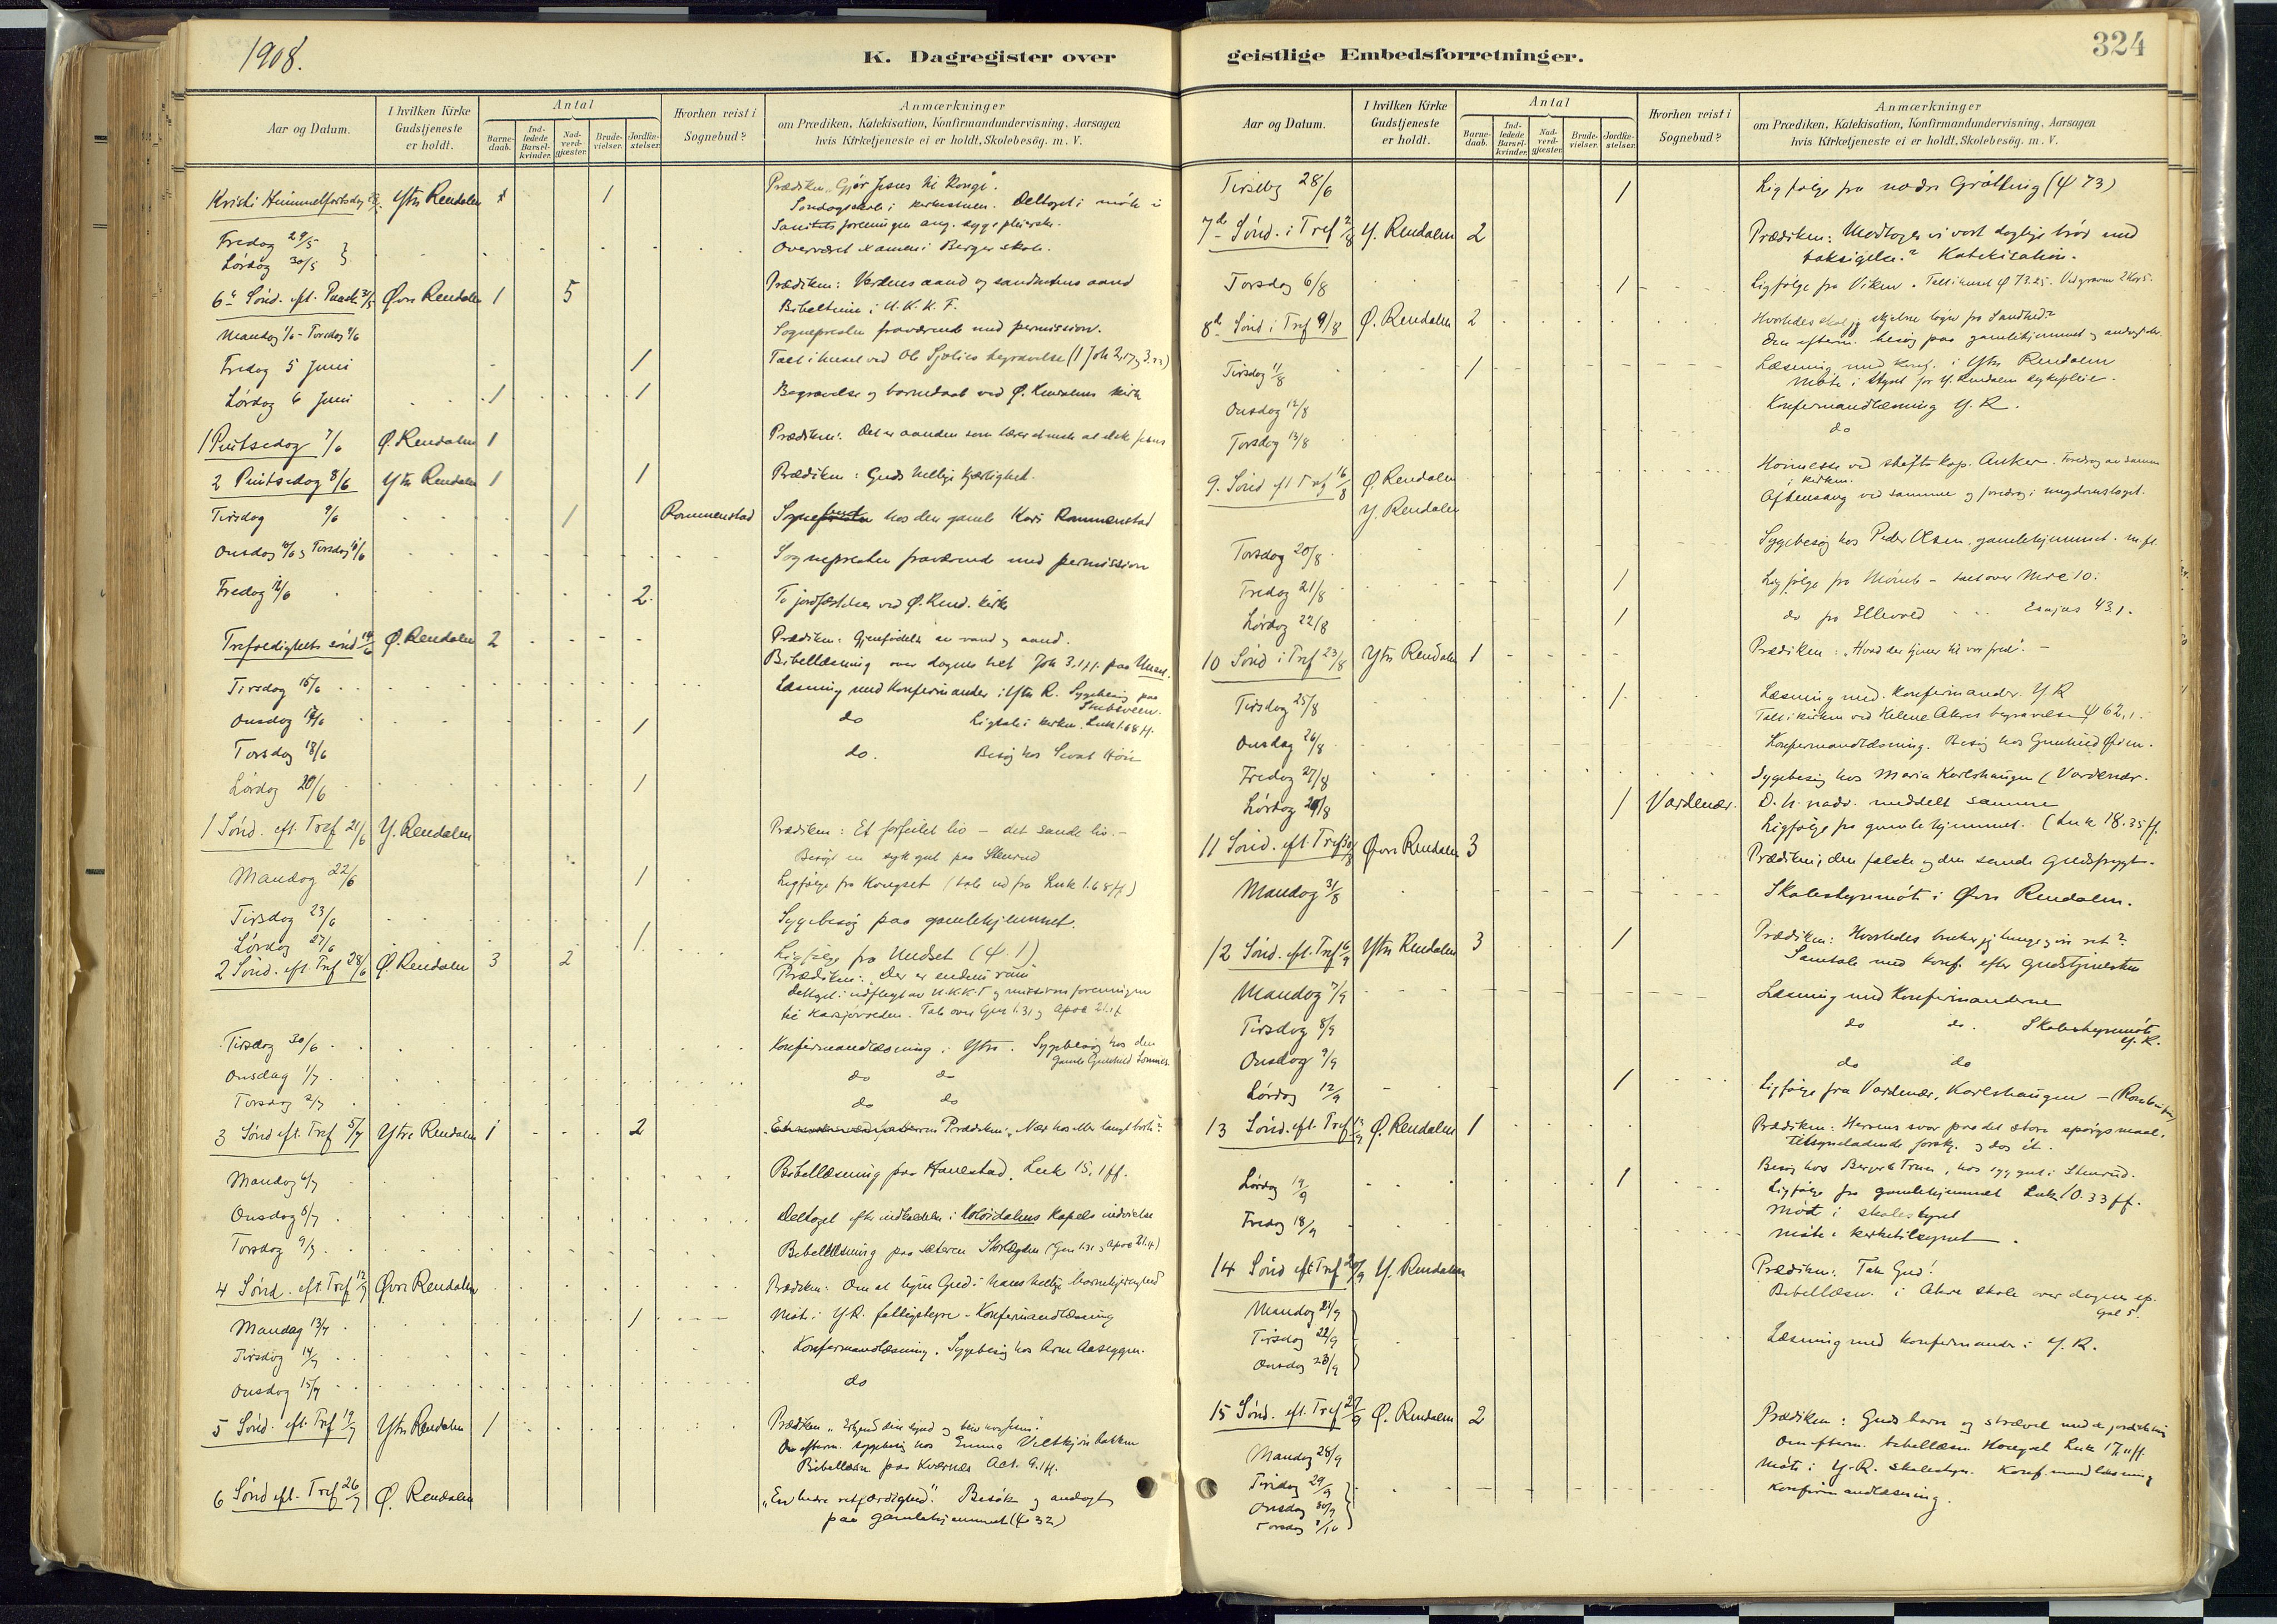 1908.
K. Dagregister over
Aar og Datum.
I hvilken Kirke Gudstjeneste er holdt.
Antal
Barnedaab.
Indledede Barselkvinder.
Nadverdgjæster.
Brudevielser.
Jordfæstelser.
Hvorhen reist i Sognebud?
Anmærkninger
om Prædiken, Katekisation, Konfirmandundervisning, Aarsagen
hvis Kirketjeneste ei er holdt, Skolebesög. m. V.
Kristi Himmelfartsdag Ytre Rendalen 1 Prædiken "Gjør Jesus til Konge".
Søndagsskole i kirkestuen. Deltaget i møte i
Sanitetsforeningen ang. sygepleierske.
Fredag 29/5
Lørdag 30/5 Overværet examen i Berger skole.
6te Sønd. eft. Paask. 31/5 Øvre Rendalen 1 5 Prædiken: Verdens aand og sandhetens aand
Bibeltime i U.K.K.F.
Mandag 1/6 - Torsdag 4/6 Sognepresten fraværende med permission.
Fredag 5 Juni 1 Tale i huset ved Ole Sjølies begravelse (1 Joh 2.17
Lørdag 6 Juni 1 1 Begravelse og barnedaab ved Ø. Rendalens kirke
1 Pintsedag 7/6 Ø. Rendalen 1 Prædiken: Det er aanden som lærer at elske Jesus
2 Pintsedag 8/6 Ytre Rendalen 1 1 Prædiken: Guds hellige kjærlighet.
Tirsdag 9/6 1 Rommenstad hos den gamle Kari Rommenstad
Onsdag 10/6 og Torsdag 11/6 Sognepresten fraværende med permission
Fredag 12/6 2 To jordfæstelser ved Ø. Rend. kirke
Trefoldighets sønd 14/6 Ø. Rendalen 2 Prædiken: Gjenfødelse av vand og aand.
Bibellæsning over dagens tekst Joh 3.1ff. paa Unset.
Tirsdag 16/6 Læsning med Konfirmander i Ytre R. Sygebesøg paa
Onsdag 17/6 1 do Ligtale i kirken. Luk 1.68 ff.
Torsdag 18/6 do. Besøg hos
Lørdag 20/6 1
1 Sønd. eft. Tref 21/6 Y. Rendalen Prædiken: Et forfeilet liv - det sande liv. -
Besøgt en syk gut paa Stenrud
Mandag 22/6 1 Ligfølge fra Kongset (tale ud fra Luk 1.68 ff)
Tirsdag 23/6 Sygebesøg paa gamlehjemmet.
Lørdag 27/6 1 Ligfølge fra Undset (Ψ. 1)
2 Sønd. eft. Tref 28/6 Ø. Rendalen 3 2 Prædiken: "Der er endnu rum"
Deltaget i utflugt av U.K.K.F og missionsforeningen
Tale over Gen 1.31 og Apoc 21.1f
Tirsdag 30/6 Konfirmandlæsning i Ytre. Sygebesøg hos den
Onsdag 1/7 do do
Torsdag 2/7 do do
3 Sønd eft. Tref 5/7 Ytre Rendalen 1 2 Prædiken: "Nær hos eller langt borte"?
Mandag 6/7 Bibellæsning paa Hanestad. Luk 15.1ff.
Onsdag 8/7 Deltaget efter indbydelse i kapels indvielse
Torsdag 9/7 Bibellæsning paa sæteren (Gen 1.31 og Apoc 21.4)
4 Sønd. eft. Tref 12/7 Øvre Rendalen Prædiken: Om at ligne Gud i hans hellige barmhjertighed
Mandag 13/7 1 Møte i Y.R. fattigstyre - Konfirmandlæsning
Tirsdag 14/7 Konfirmandlæsning. Sygebesøg hos Arne Aaseggen.
Onsdag 15/7 do
5 Sønd. eft. Tref 19/7 Ytre Rendalen 1 Prædiken
Om efterm. sygebesøg hos Emma
Bibellæsn paa Kværnes Act. 9.1ff.
6 Sønd eft. Tref 26/7 Ø. Rendalen "En bedre retfærdighed". Besøk og andagt
paa gamlehjemmet (Ψ 32)
geistlige Embedsforretninger.
324
Aar og Datum.
I hvilken Kirke Gudstjeneste er holdt.
Antal
Barnedaab.
Indledede Barselkvinder.
Nadverdgjæster.
Brudevielser.
Jordfæstelser.
Hvorhen reist i Sognebud?
Anmærkninger
om Prædiken, Katekisation, Konfirmandundervisning, Aarsagen
hvis Kirketjeneste ei er holdt, Skolebesög. m. V.
Tirsdag 28/6 1 Ligfølge fra nedre Grøtting (Ψ 73)
7de Sønd. i Tref 2/8 Y. Rendalen 2 Prædiken: Modtager vi vort daglige brød med
taksigelse? Katekisation.
Torsdag 6/8 1 Ligfølge fra Viken. Tale i huset Ψ 73.25. Ved graven 2 Kor 5.
8de Sønd i Tref 9/8 Ø. Rendalen 2 Hvorledes skal jeg skjelne løgn fra Sandhed?
Den efterm. besøg paa gamlehjemmet og andagt der.
Tirsdag 11/8 1 Læsning med Konf. i Ytre Rendalen
Møte i styret for Y. Rendalens sykepleie.
Onsdag 12/8 Konfirmandlæsning Y.R.
Torsdag 13/8 do
9. Sønd eft Tref 16/8 Ø. Rendalen Høimesse ved stiftskap. Anker. Foredrag av samme
i kirken.
Y. Rendalen Aftensang ved samme og foredrag i ungdomslaget.
Torsdag 20/8 Sygebesøg hos Peder Olsen, gamlehjemmet. m. fl.
Fredag 21/8 1 Ligfølge fra - tale over
Lørdag 22/8 1 do fra Ellevold Esajas 43.1.
10 Sønd i Tref 23/8 Ytre Rendalen 1 Prædiken: "Hvad der tjener til vor fred". -
Tirsdag 25/8 1 Læsning med Konfirmander Y.R
Tale i kirken ved Helene Akres begravelse Ψ 62.1.
Onsdag 26/8 Konfirmandlæsning. Besøg hos Gunhild
Fredag 27/8 Sygebesøg hos Maria Karlshaugen (Vardenær.
Lørdag 29/8 1 Vardenær. D. h. nadv. meddelt samme
Ligfølge fra gamlehjemmet. (Luk 18.35 ff.
11 Sønd. eft. Tref 30/8 Øvre Rendalen 3 Prædiken: den falske og den sande Gudsfrygt.
Mandag 31/8 Skolestyremøte i Øvre Rendalen.
12 Sønd. eft. Tref 6/9 Ytre Rendalen 3 1 Prædiken: Hvorledes bruker jeg tunge og øre ret?
Samtale med konf. efter Gudstjenesten
Mandag 7/9 Læsning med Konfirmanderne
Tirsdag 8/9 do do. Skolestyremøte
Y.R.
Onsdag 9/9 do do
Lørdag 12/9 1 Ligfølge fra Vardenær, Karlshaugen
13 Sønd. eft. Tref 13/9 Ø. Rendalen 1 Prædiken: Herrens svar paa det store spørgsmaal.
Tilsyneladende forskj. og dog ét.
Besøg hos
Lørdag 19/9 1 Ligfølge fra gamlehjemmet Luk 10.33 ff.
Fredag 18/9 Møte i skolestyret
Møte i kirketilsynet.
14 Sønd eft Tref 20/9 Y. Rendalen Prædiken: Tak Gud!
Bibellæsn. i Akre skole over dagens ep.
Gal 5.
Mandag 21/9
Tirsdag 22/9 Læsning med konfirmander i Y.R.
Onsdag 23/9
15 Sønd. eft. Tref 27/9 Ø. Rendalen 2 Prædiken: Guds barn og
Om efterm. bibellæsn. Luk 17.11ff.
Mandag 28/9 Møte i Y.R. skolestyre. Konf.mandlæsning
Tirsdag 29/9 Konfirmandlæsning.
Onsdag 30/9
Torsdag 1/10